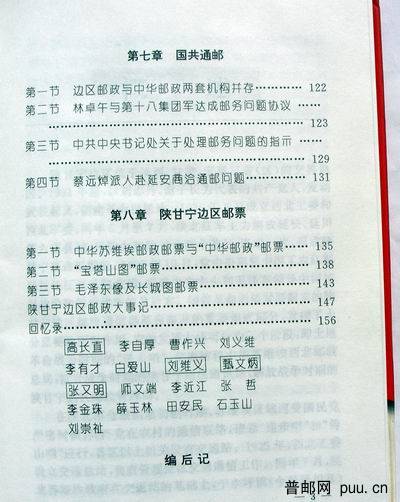 第七章 国共通邮
第一节 边区邮政与中华邮政两套机构并存 ············ 122
第二节 林卓午与第十八集团军达成邮务问题协议
············ 123
第三节 中共中央书记处关于处理邮务问题的指示
············ 129
第四节 蔡远焯派人赴延安商洽通邮问题 ············ 131
第八章 陕甘宁边区邮票
第一节 中华苏维埃邮政邮票与“中华邮政”邮票 ············ 135
第二节 “宝塔山图”邮票 ············ 138
第三节 毛泽东像及长城图邮票 ············ 143
陕甘宁边区邮政大事记 ············ 147
回忆录 ············ 156
高长直 李自厚 曹作兴 刘义维
李有才 白爱山 刘维义 甄文炳
张又明 师文端 李近江 张 哲
李金珠 薛玉林 田安民 石玉山
刘崇祉
编后记
普邮网 puu.cn